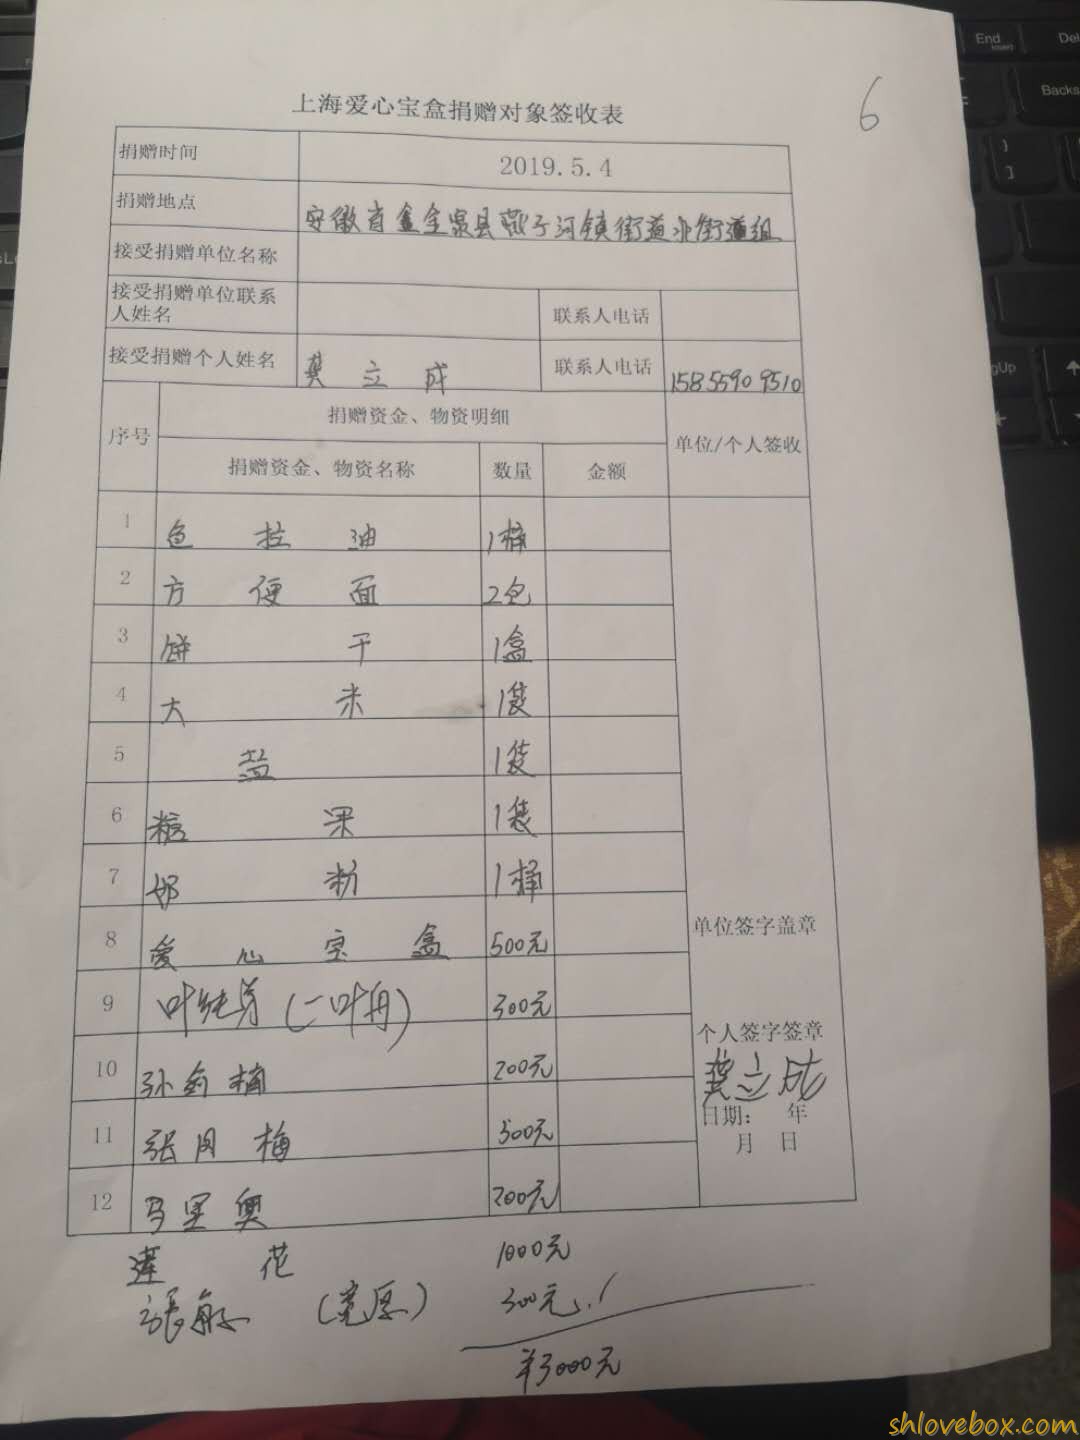 6
上海爱心宝盒捐赠对象签收表
捐赠时间 2019.5.4
捐赠地点 安徽省金寨县燕子河镇街道办街道组
接受捐赠单位名称
接受捐赠单位联系人姓名 联系人电话
接受捐赠个人姓名 龚立成 联系人电话 15855909510
序号 捐赠资金、物资明细 单位/个人签收
捐赠资金、物资名称 数量 金额
1 色拉油 1桶
2 方便面 2包
3 饼干 1盒
4 大米 1袋
5 盐 1袋
6 糖果 1袋
7 奶粉 1桶
8 爱心宝盒 500元
单位签字盖章
9 叶纯芳(一叶舟) 300元
个人签字签章
龚立成
10 孙 楠 200元
日期: 年
月 日
11 张月梅 500元
12 马里奥 200元
莲花 1000元
張敏 (宽厚) 300元
¥3000元
shlovebox.com
End
Insert
Del
Backs
PgUp